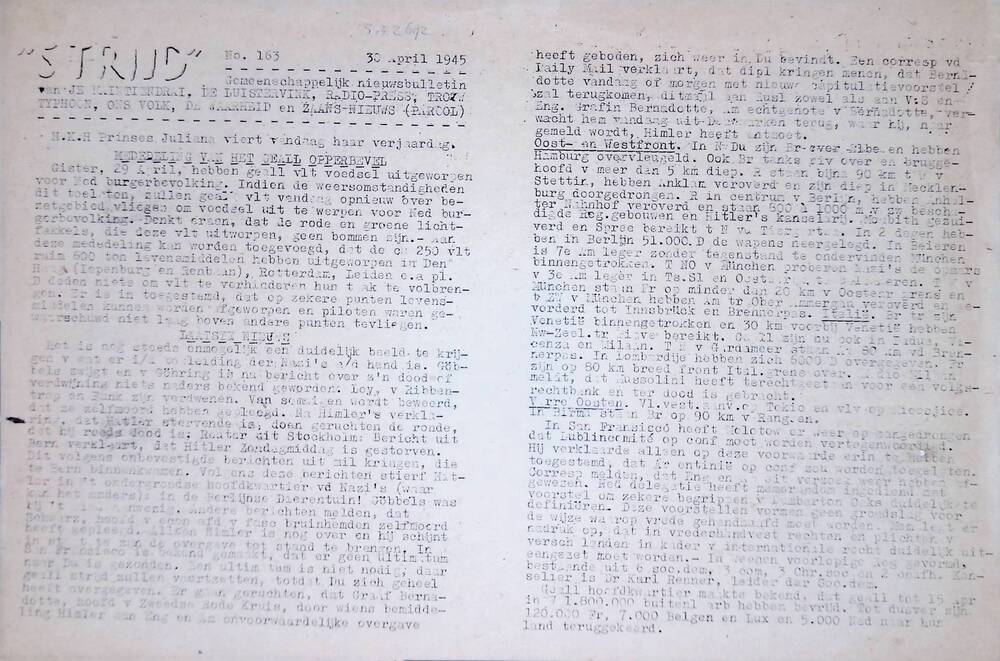 "STRIJD"
No. 163 30 April 1945
Gemeenschappelijk nieuwsbulletin
van JE MAINTIENDRAI, DE LUISTERVINK, RADIO-PRESS, TROUW
TYPHOON, ONS VOLK, DE WAARHEID en ZAANS-NIEUWS (PAROOL)
H.K.H Prinses Juliana viert vandaag haar verjaardag.
MEDEDELING VAN HET GEALL OPPERBEVEL
Gister, 29 April, hebben geall vlt voedsel uitgeworpen
voor Ned burgerbevolking. Indien de weersomstandigheden
dit toelaten, zullen geall vlt vandaag opnieuw over be-
zetgebied vliegen om voedsel uit te werpen voor Ned bur-
gerbevolking. Denkt eraan, dat de rode en groene licht-
fakkels, die deze vlt uitworpen, geen bommen zijn.- Aan
deze mededeling kan worden toegevoegd, dat de ca 250 vlt
ruim 600 ton levensmiddelen hebben uitgeworpen in Den
Haag (Iepenburg en Renbaan), Rotterdam, Leiden e.a pl.
D deden niets om vlt te verhinderen hun taak te volbren-
gen. Er is in toegestemd, dat op zekere punten levens-
middelen kunnen worden afgeworpen en piloten waren ge-
waarschuwd niet laag boven andere punten tevliegen.
LAATSTE NIEUWS
Het is nog steeds onmogelijk een duidelijk beeld te krij-
gen v wat er i/d leiding der Nazi's a/d hand is. Göb-
bels zwijgt en v Göhring is nu bericht over z'n dood of
verdwijning niets naders bekend geworden. Ley, v Ribben-
trop en Funk zijn verdwenen. Van sommigen wordt beweerd,
dat ze zelfmoord hebben gepleegd. Na Himler's verkla-
ring, dat Hitler stervende is, doen geruchten de ronde,
dat hij reeds dood is: Reuter uit Stockholm: Bericht uit
Bern verklaart, dat Hitler Zondagmiddag is gestorven.
Dit volgens onbevestigde berichten uit mil kringen, die
te Bern binnenkwamen. Volgens deze berichten stierf Hit-
ler in 't onderaardse hoofdkwartier vd Nazi's (waar
kan het anders): in de Berlijnse Dierentuin! Göbbels was
bij 't aanwezig. Andere berichten melden, dat
Schwarz, hoofd v econ afd v fasc bruinhemden zelfmoord
heeft gepleegd. Alleen Himler is nog over en hij schijnt
in staat te zijn de overgave tot stand te brengen. In
San Francisco is bekend gemaakt, dat er geen ultimatum
naar Du is gezonden. Een ultimatum is niet nodig, daar
geall strijd zullen voortzetten, totdat Du zich geheel
heeft overgegeven. Er gaan geruchten, dat Graaf Berna-
dotte, hoofd v Zweedse Rode Kruis, door wiens bemidde-
ling Himler aan Eng en Am onvoorwaardelijke overgave
heeft geboden, zich weer in Du bevindt. Een corresp vd
Daily Mail verklaart, dat dipl kringen menen, dat Berna-
dotte vandaag of morgen met nieuw capitulatievoorstel
zal terugkomen, ditmaal aan Rusl zowel als aan V:S en
Eng. Gräfin Bernadotte, de echtgenote v Bernadotte, ver-
wacht hem vandaag uit Denemarken terug, waar hij, naar
gemeld wordt, Himler heeft ontmoet.
Oost- en Westfront. In N Du zijn Br over Elbe en hebben
Hamburg overvleugeld. Ook Br tanks riv over en brugge-
hoofd v meer dan 5 km diep. R staan bijna 90 km t W v
Stettin, hebben Anklam veroverd en zijn diep in Mecklen-
burg doorgedrongen. R in centrum v Berlijn, hebben Anhal-
ter Bahnhof veroverd en staan 500 à 1000 m v zw bescha-
digde Reg.gebouwen en Hitler's kanselarij. Moabit gezui-
verd en Spree bereikt t N v Tiergarten. In 2 dagen heb-
ben in Berlijn 51.000 D de wapens neergelegd. In Beieren
is 7e Am leger zonder tegenstand te ondervinden München
binnengetrokken. T NO v München proberen Nazi's de opmars
v 3e Am leger in Ts.Sl en Oostenrijk te
München staan Fr op minder dan 20 km v Oostenr grens en
t ZW v München hebben Am tr Oberammergau veroverd en ge-
vorderd tot Innsbrück en Brennerpas. Italië. Br tr zijn
Venetië binnengetrokken en 30 km voorbij Venetië hebben
Nw-Zeel.tr Piave bereikt. Geall zijn nu ook in Padua, Vi-
cenza en Milaan. T O v Gardameer staan Am 80 km vd Bren-
nerpas. In Lombardije hebben zich 8000 D overgegeven. Fr
zijn op 80 km breed front Ital.grens over.
meldt, dat Mussolini heeft terechtgestaan voor een volks-
rechtbank en ter dood is gebracht.
Verre Oosten. Vl.vest.aanv.op Tokio en vlv op
In Birma staan Br op 90 km v Rangoen.
In San Fransisco heeft Molotow er weer op aangedrongen
dat Lublincomité op conf moet worden vertegenwoordigd.
Hij verklaarde alleen op deze voorwaarde erin te
toegestemd, dat Argentinië op conf zou worden toegelaten.
Corresp melden, dat Eng en
gewezen. Ned delegatie heeft memorandum ingediend met
voorstel om zekere begrippen v Dumbarton Oaks duidelijk te
definiëren. Deze voorstellen vormen geen grondslag voor
de wijze waarop vrede gehandhaafd moet worden. Ned legt er
nadruk op, dat in vredeshandvest rechten en plichten v
versch landen in kader v internationale recht duidelijk uit-
eengezet moet worden.- In Weenen voorlopige Reg gevormd,
bestaande uit 6 soc.dem. 7 com. 5 Chr.soc en 2 onafh. Kan-
selier is Dr Karl Renner, leider der Soc.dem.
Geall hoofdkwartier maakte bekend, dat geall tot 15 apr
in 1.800.000 buitenl arb hebben bevrijd. Tot dusver zijn
126.000 Fr, 7.000 Belgen en Lux en 5.000 Ned naar hun
land teruggekeerd.